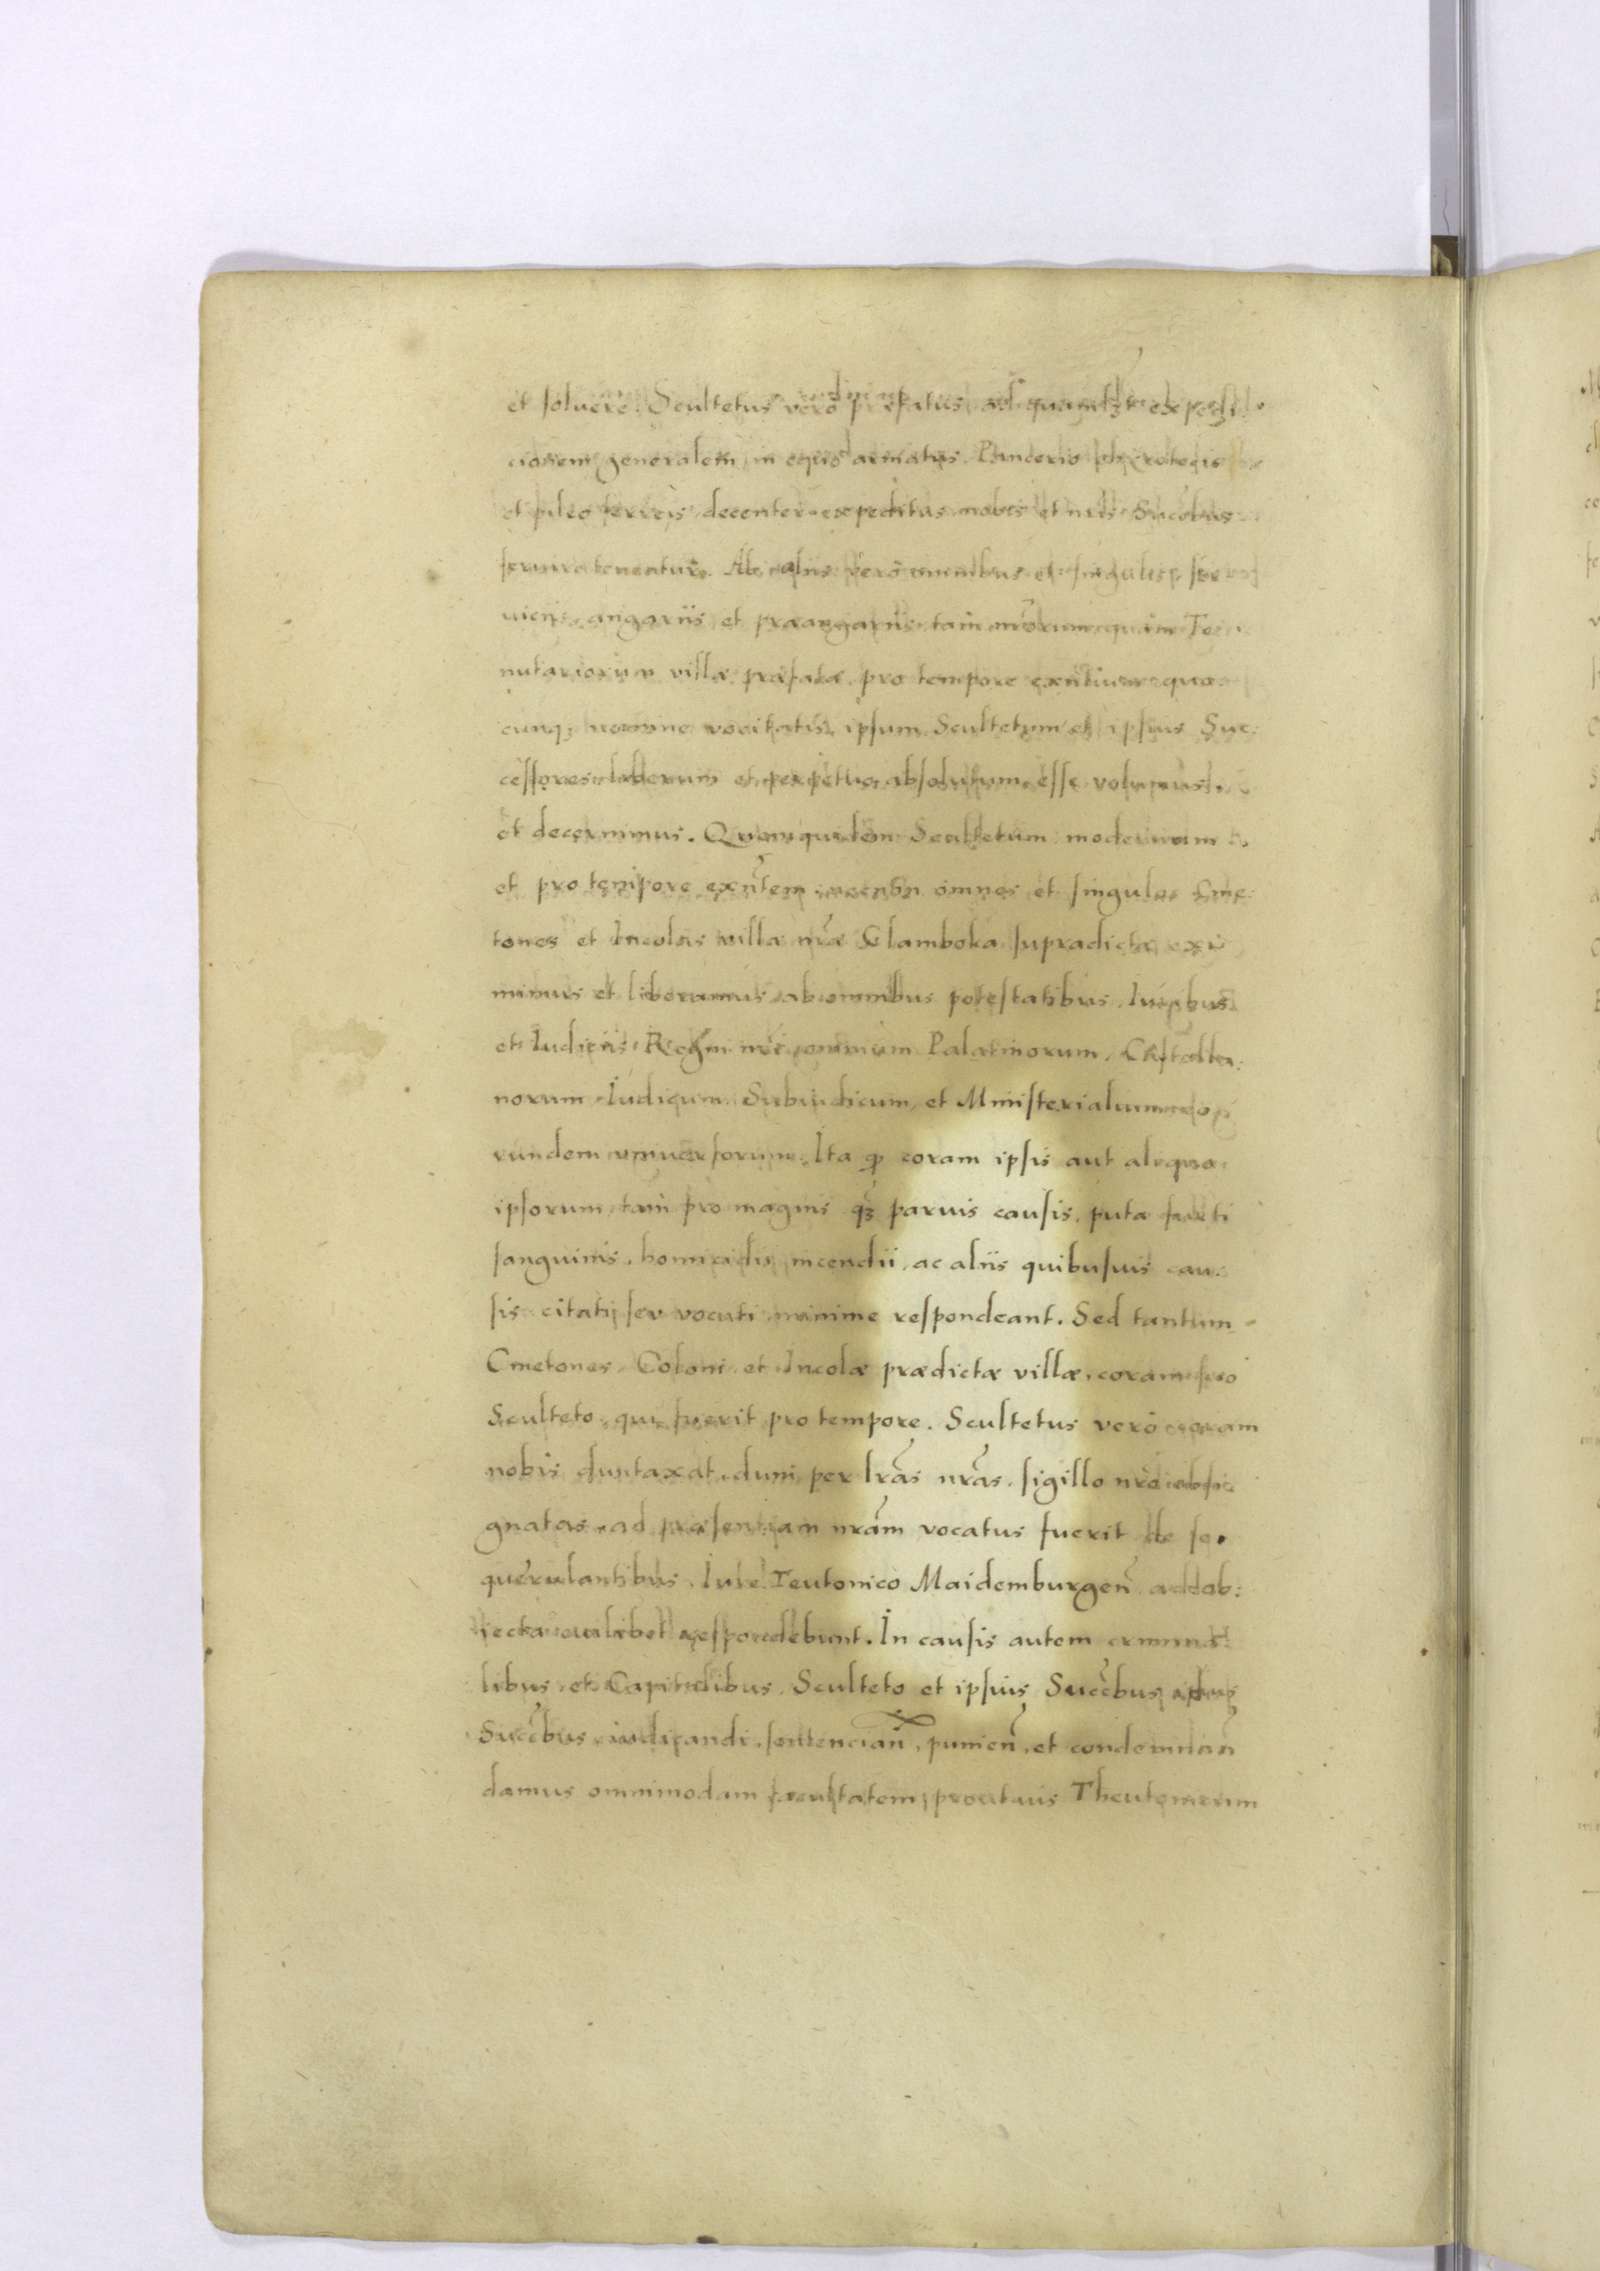 et soluere. Scultetus verò prefatus ad quamlꝫ expedi:
cionem generalem in equo armatus Pancerio
et pileo ferreis decenter expeditus nobis et nr̃is Succ̃bus
seruire tenentur. Ab alijs verò omnibus et singulis ser
uicijs, angariis et præangariis tam nr̃orum quàm Te:
nutariorum villæ præfatæ pro tempore exñtium quo:
cunqꝫ nomine vocitatis, ipsum Scultetum et ipsius Suc:
cessores liberum et perpetuo absolutum esse volumus
et decernimus. Quemquidem Scultetum modernum
et pro tempore exñtem necnõn omnes et singulos Cme:
tones et Incolas villæ nr̃æ Glamboka supradictæ exi
mimus et liberamus ab omnibus potestatibus, Iuribus
et Iudiciis Regni nr̃i omnium Palatinorum, Castella:
norum Iudicum Subiudicum, et Ministerialium eo
rundem vniuersorum. Ita ꝙ coram ipsis aut aliquo
ipsorum, tam pro magnis qꝫ paruis causis, puta furti
sanguinis, homicidii, incendii, ac aliis quibusuis cau:
sis citati seu vocati minime respondeant. Sed tantum
Cmetones, Coloni et Incolæ prædictæ villæ, coram suo
Sculteto, qui fuerit pro tempore. Scultetus verò coram
nobis duntaxat, dum per lr̃as nr̃as, sigillo nrò obsi:
gnatas, ad præsentiam nr̃am vocatus fuerit de se
querulantibus, Iure Teutonico Maidemburgeñ addob:
iecta cuilibet respondebunt. In causis autem crimina:
libus et Capitalibus, Sculteto et ipsius Succ̃bus
Succ̃bus iudicandi, sentenciañ, punieñ, et condemnañ
damus omnimodam facultatem, prout ius Theutonicum